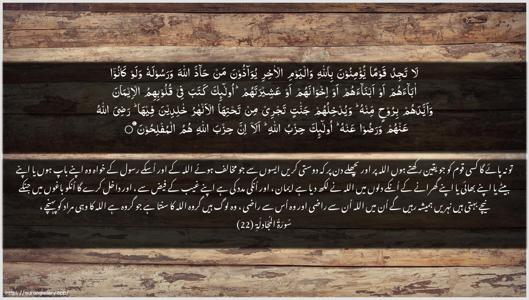 لَا تَجِدُ قَوْمًا يُّؤْمِنُوْنَ بِاللّٰهِ وَالْيَوْمِ الْاٰخِرِ يُوَآدُّوْنَ مَنْ حَآدَّ اللّٰهَ وَرَسُوْلَهٗ وَلَوْ كَانُوْٓا
اٰبَآءَهُمْ اَوْ اَبْنَآءَهُمْ اَوْ اِخْوَانَهُمْ اَوْ عَشِيْرَتَهُمْ ؕ اُولٰٓئِكَ كَتَبَ فِىْ قُلُوْبِهِمُ الْاِيْمَانَ
وَاَيَّدَهُمْ بِرُوْحٍ مِّنْهُ ؕ وَيُدْخِلُهُمْ جَنّٰتٍ تَجْرِىْ مِنْ تَحْتِهَا الْاَنْهٰرُ خٰلِدِيْنَ فِيْهَا ؕ رَضِىَ اللّٰهُ
عَنْهُمْ وَرَضُوْا عَنْهُ ؕ اُولٰٓئِكَ حِزْبُ اللّٰهِ ؕ اَلَاۤ اِنَّ حِزْبَ اللّٰهِ هُمُ الْمُفْلِحُوْنَ
تو نہ پائے گا کسی قوم کو جو یقین رکھتے ہوں اللہ پر اور پچھلے دن پر کہ دوستی کریں ایسوں سے جو مخالف ہوئے اللہ کے اور اُسکے رسول کے خواہ وہ اپنے باپ ہوں یا اپنے
بیٹے یا اپنے بھائی یا اپنے گھرانے کے اُنکے دلوں میں اللہ نے لکھ دیا ہے ایمان، اور اُنکی مدد کی ہے اپنے غیب کے فیض سے، اور داخل کرے گا اُنکو باغوں میں جنکے
نیچے بہتی ہیں نہریں ہمیشہ رہیں گے اُن میں اللہ اُن سے راضی اور وہ اُس سے راضی، وہ لوگ ہیں گروہ اللہ کا سنتا ہے جو گروہ ہے اللہ کا وہی مراد کو پہنچے،
سُوۡرَةُ الْمُجَادلَة (22)